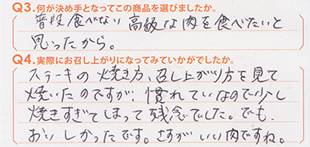 Q3.何が決め手となってこの商品を選びましたか。
普段食べない高級な肉を食べたいと
思ったから。
Q4.実際にお召し上がりになってみていかがでしたか。
ステーキの焼き方、召し上がり方を見て
焼いたのですが、慣れていないので少し
焼きすぎてしまって残念でした。でも、
おいしかったです。さすがいい肉ですね。